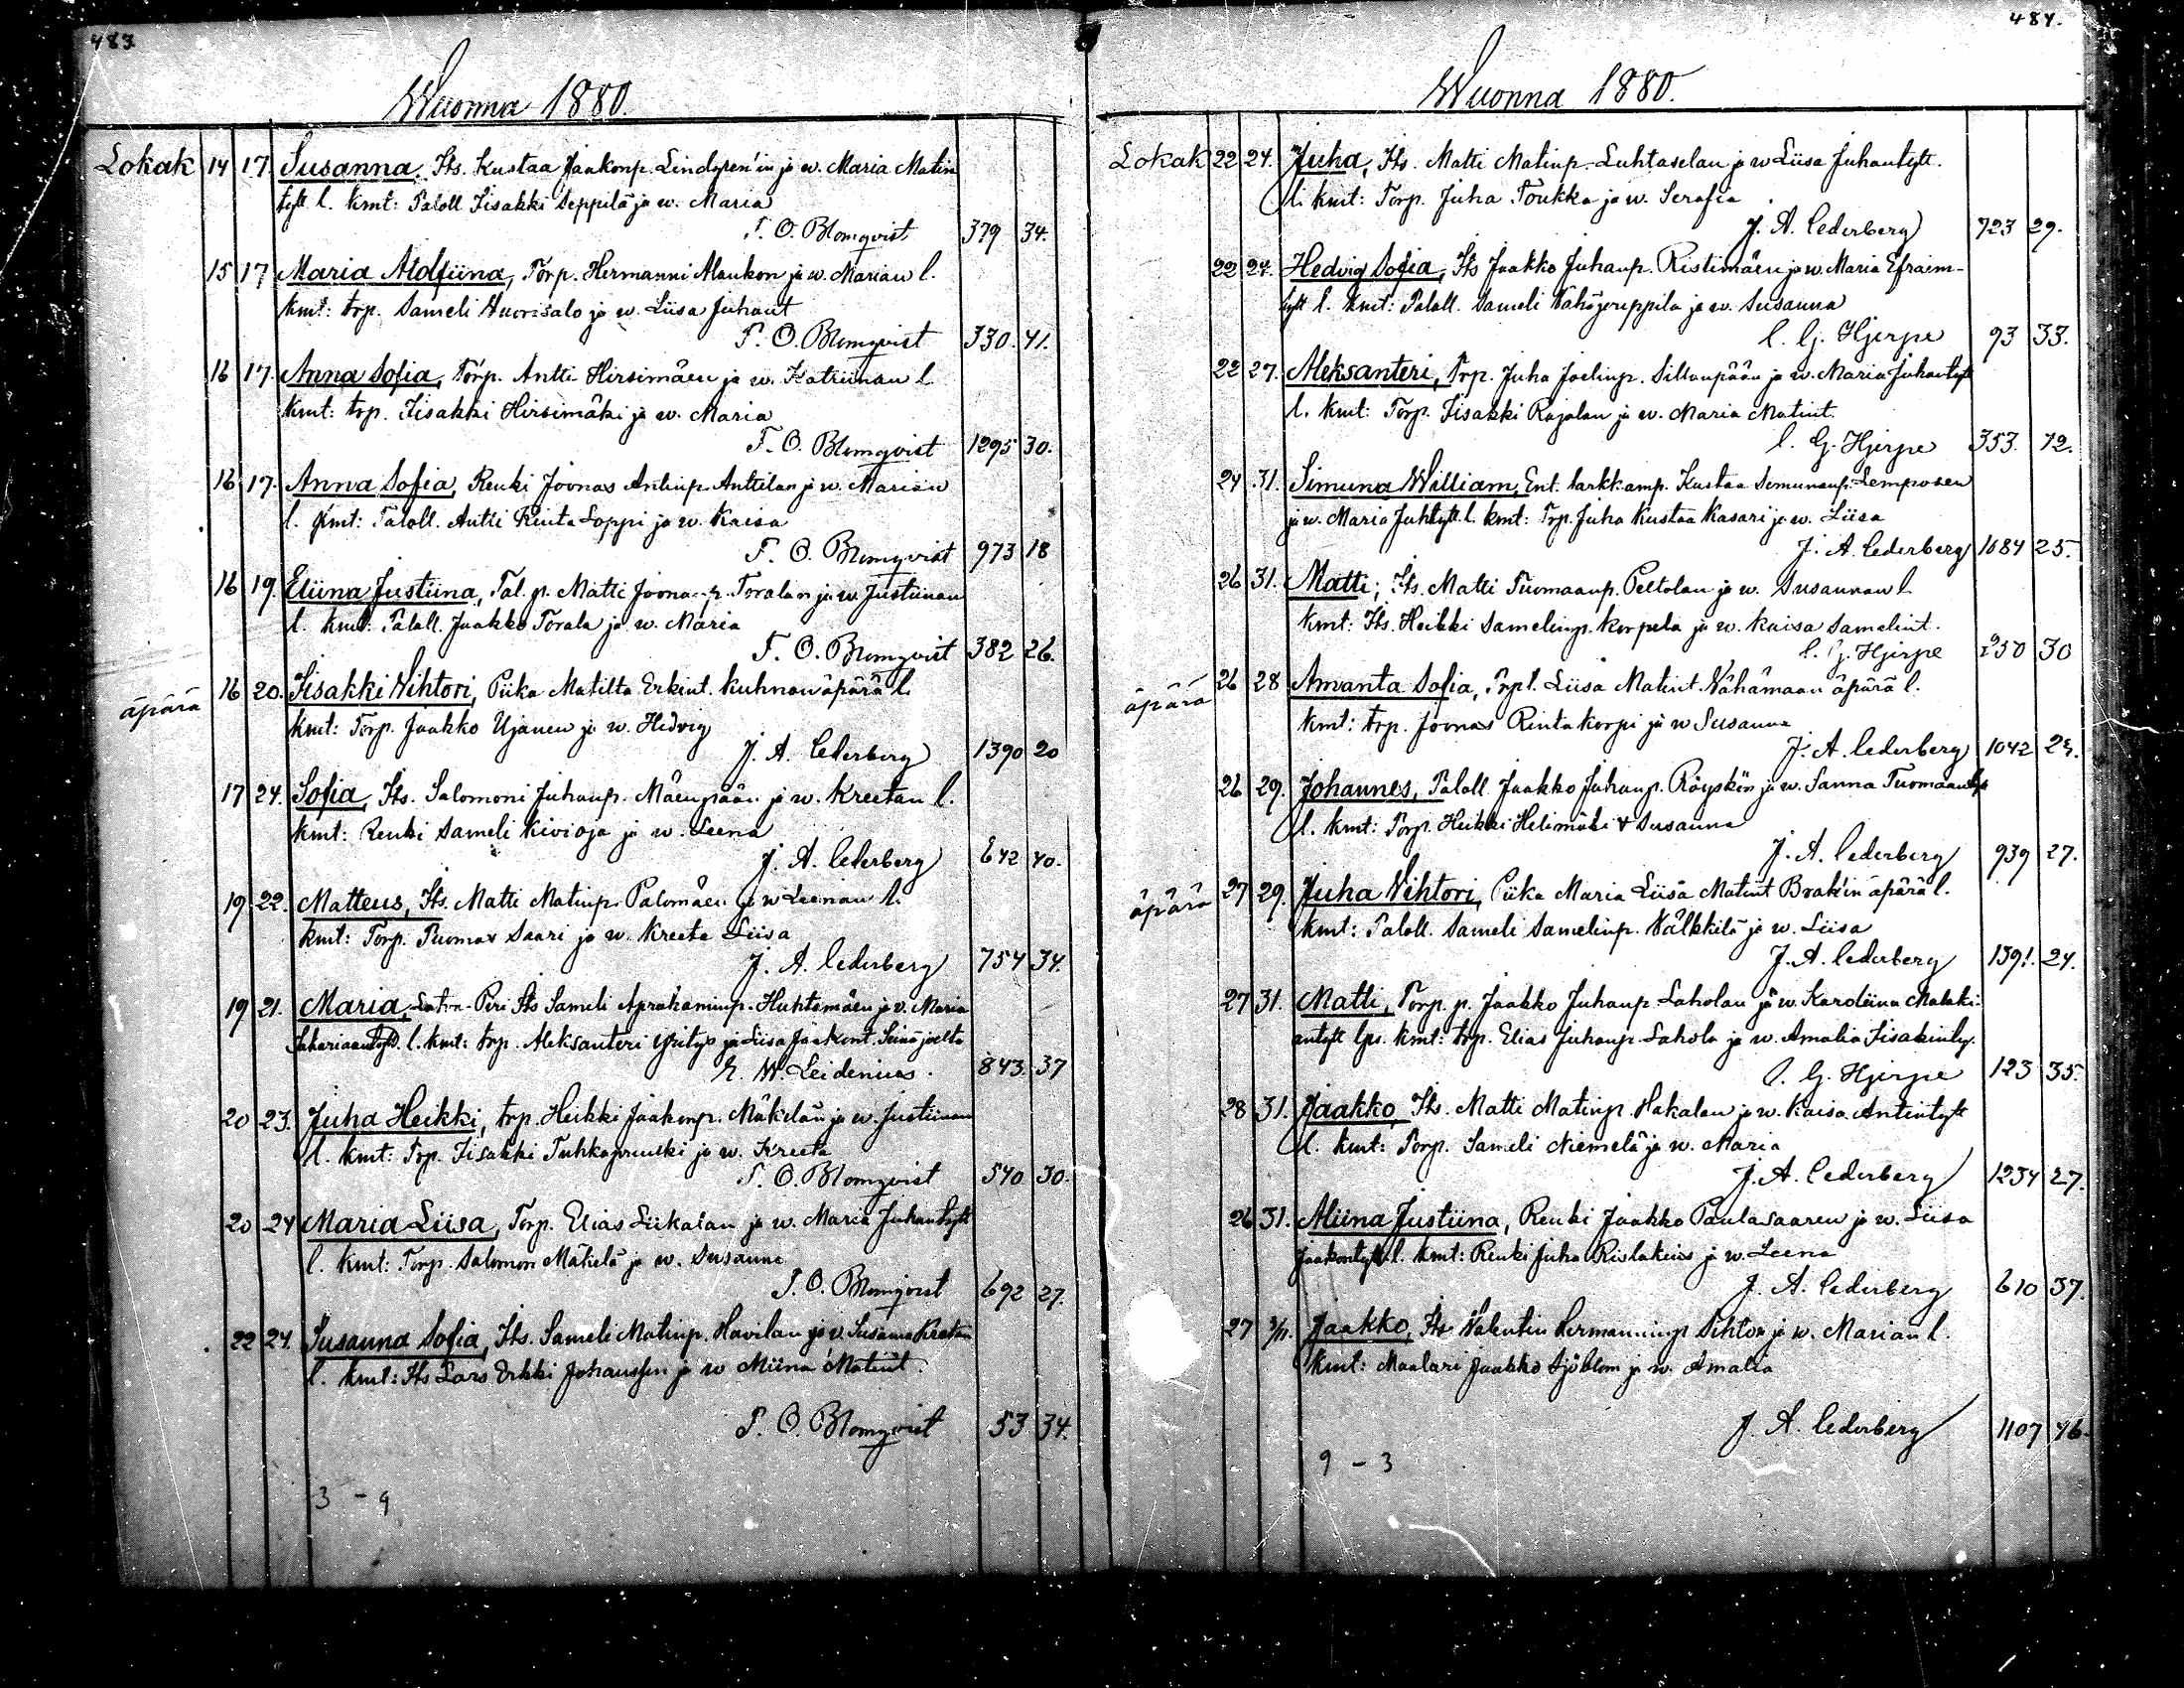 483
Wuonna 1880.
Lokak 14 17. Susanna, Its. Kustaa Jaakonp. Lindgren'in ja w. Maria Matin
tytt l. kmt: Taloll Iisakki Seppilä ja w. Maria
F. O. Blomqvist 379 34.
15 17 Maria Aldfiina, Torp. Hermanni Alankon ja w. Marian l.
kmt: trp. Sameli Wuorisalo ja w. Liisa Juhant
F. O. Blomqvist 330. 41.
16 17. Anna Sofia, Torp. Antti Hirsimäen ja w. Katriinan l.
kmt: trp. Iisakki Hirsimäki ja w. Maria
F. O. Blomqvist 1295 30.
16 17. Anna Sofia, Renki Joonas Antinp. Anttilan ja w. Marian
l. kmt: Taloll. Antti Rinta Loppi ja w. Kaisa
F. O. Blomqvist 973 18
16 19. Eliina Justiina, Tal. p. Matti Joonanp. Toralan ja w. Justiinan
l. kmt: Taloll. Jaakko Torala ja w. Maria
F. O. Blomqvist 382 26.
äpärä 16 20. Iisakki Wihtori, Piika Matilta Erkint. Kuhnan äpärä l.
kmt: Torp. Jaakko Ujanen ja w. Hedvig
J. A. Cederberg 1390 20
17 24. Sofia, Its. Salomoni Juhanp. Mäenpään ja w. Kreetan l.
kmt: Renki Sameli Kivioja ja w. Leena
J. A. Cederberg 642 40.
19 22. Matteus, Its. Matti Matinp. Palomäen ja w Leenan l.
kmt: Torp. Tuomas Saari ja w. Kreeta Liisa
J. A. Cederberg 754 34.
19 21. Maria, Peri Its Sameli Aprahaminp. Huhtamäen ja v. Maria
Sakariaantytt. l. kmt: trp. Aleksanteri Yritys ja Liisa Jaakont. Seinäjoelta
E. W. Leidenius. 843. 37
20 23. Juha Heikki, trp. Heikki Jaakonp. Mäkelän ja w. Justiinan
l. kmt: Trp. Iisakki ja w. Kreeta
F. O. Blomqvist 540 30.
20 24 Maria Liisa, Torp. Elias Liikalan ja w. Maria Juhantytt
l. kmt: Torp. Salomon Mäkelä ja w. Susanna
F. O. Blomqvist 692 27.
22 24. Susanna Sofia, Its. Sameli Matinp. Havilan ja v. Susanna Kreetan
l. kmt: Its Lars Erkki Johanssen ja w Miina Matint.
F. O. Blomqvist 53 34.
3 - 9
484.
Wuonna 1880.
Lokak 22 24. Juha, Its. Matti Matinp. Luhtaselan ja w Liisa Juhantytt.
l. kmt: Torp. Juha Toukka ja w. Serafia
J. A. Cederberg 723 29.
22 24. Hedvig Sofia, Its Jaakko Juhanp. Ristimäen ja w. Maria Efraim-
tytt l. kmt: Taloll. Sameli Vähäjouppila ja w. Susanna
C. G. Hjerpe 93 33.
22 27. Aleksanteri, Trp. Juha Joelinp. Sillanpään ja w. Maria Juhantytt
l. kmt: Torp. Iisakki Rajalan ja w. Maria Matint.
C. G. Hjerpe 353. 72.
24 31. Simuna William, Ent. tarkkamp. Kustaa Simunanp. Lemposen
ja w. Maria Juhtytt. l. kmt: Trp. Juha Kustaa Kasari ja w. Liisa
J. A. Cederberg 1084 25.
26 31. Matti, Its. Matti Tuomaanp. Peltolan ja w. Susannan l.
kmt: Its. Heikki Samelinp. Korpela ja w. Kaisa Samelint.
C. G. Hjerpe 250 30
äpärä 26 28 Amanta Sofia, Trpl. Liisa Matint. Vähämaan äpärä l.
kmt: trp. Joonas Rintakorpi ja w Susanna
J. A. Cederberg 1042 23.
26 29. Johannes, Taloll. Jaakko Juhanp. Röyskön ja w. Sanna Tuomaantyt
l. kmt: Torp. Heikki Helimäki & Susanna
J. A. Cederberg 939 27.
äpärä 27 29. Juha Wihtori, Piika Maria Liisa Matint Brak'in äpärä l.
kmt: Taloll. Sameli Samelinp. Välkkilä ja w. Liisa
J. A. Cederberg 1391. 24.
27 31. Matti, Torp. p. Jaakko Juhanp Laholan ja w. Karoliina Malaki-
antytt lps. kmt: trp. Elias Juhanp. Lahola ja w. Amalia Iisakinty.
C. G. Hjerpe 123 35.
28 31. Jaakko, Its. Matti Matinp. Hakalan ja w. Kaisa Antintytt
l. kmt: Torp. Sameli Niemelä ja w. Maria
J. A. Cederberg 1234 27.
26 31. Miina Justiina, Renki Jaakko Paulasaaren ja w. Liisa
Jaakontytt l. kmt: Renki Juha Rislakeis ja w. Leena
J. A. Cederberg 610 37.
27 3/11. Jaakko, Its Valentin Hermanninp. Sihton ja w. Marian l.
kmt: Maalari Jaakko Sjöblom ja w. Amalia
J. A. Cederberg 1107 46.
9 - 3